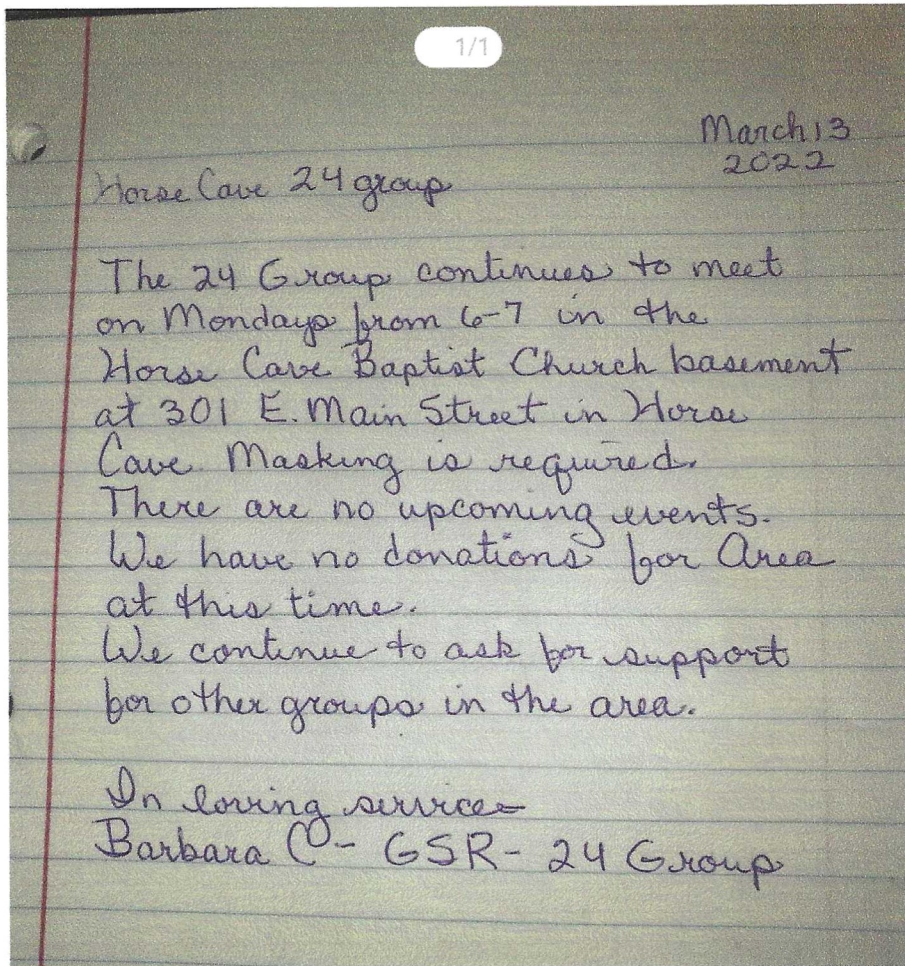 1/1
March 13
2022
Horse Cave 24 group
The 24 Group continues to meet
on Mondays from 6-7 in the
Horse Cave Baptist Church basement
at 301 E. Main Street in Horse
Cave Masking is required.
There are no upcoming events.
We have no donations for Area
at this time.
We continue to ask for support
for other groups in the area.
In loving service-
Barbara C - GSR - 24 Group